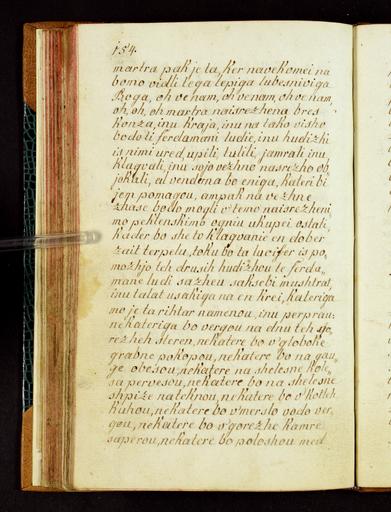 154.
martra pak je ta, ker navekomei na
bono vidli tega lepiga lubesniviga
Boga, oh ve nam, oh ve nam, oh ve nam,
oh, oh, oh martra naisrezhena bres
konza, inu kraja, inu na tako visho
bodo ti ferdamani ludie, inu hudizhi
is nimi vred, upili, tulili, jamrali, inu
klagvali, inu sojo vezhno nasrezho ob,
jokali, al vender na bo eniga, kateri bi
jem pomagou, ampak na vezhne
zhase bodo mogli v' temo naisrezheni
mo peklenskimo ogniu vkupei ostati,
kader bo she to klagvanie en dober
zait terpelu, toku bo ta lucifer is po,
mozhjo teh drusih hudizhou te ferda,
mane ludi sazheu saksebi mushtrat,
inu talat usakiga na en krei, kateriga
mo je ta rihtar namenou, inu perprau:
nekateriga bo vergou na dnu teh go,
rezheh shteren, nekatere bo v' globoke
grabne pokopou, nekatere bo na gau,
ge obesou, nekatere na shelesne kole,
sa pervesou, nekatere bo na shelesne
shpize nateknou, nekatere bo v' kotleh
kuhou, nekatere bo v' merslo vodo ver,
gou, nekatere bo v' gorezhe kamre
saperou, nekatere bo poloshou med